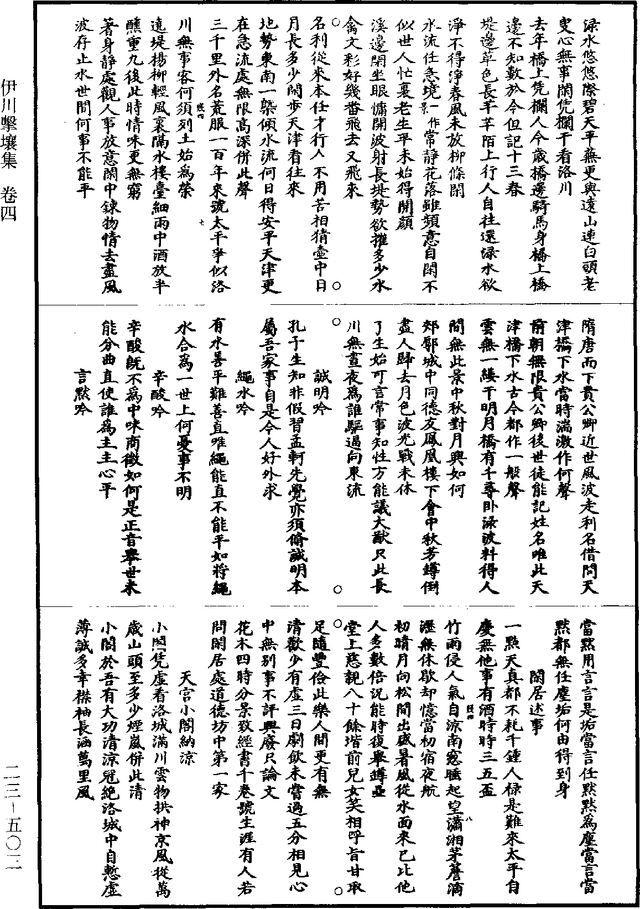 渌水悠悠際碧天平蕪更與遠山連白頭老
叟心無事閑凭欄干看洛川
去年橋上凭欄人今歲橋邊騎馬身橋上橋
邊不知數於今但記十三春
堤邊草色長芊芊陌上行人自往還渌水欲
淨不得淨春風未放柳條閑
水流任急境一作景常靜花落雖頻意自閑不
似世人忙裏老生平未始得開顔
溪邊閑坐眼慵開波射長堤勢欲摧多少水
禽文彩好幾番飛去又飛來
名利從來本任才行人不用苦相猜壺中日
月長多少閑步天津看往來
地勢東南一槩傾水流何日得安平天津更
在急流處無限高深併此聲
三千里外名荒服一百年來號太平爭似洛
川無事客何須列土始為榮
遠堤楊柳輕風裏隔水樓臺細雨中酒放半
醺重九後此時情味更無窮
著身靜處觀人事放意閑中鍊物情去盡風
波存止水世間何事不能平
隋唐而下貴公卿近世風波走利名借問天
津橋下水當時湍激作何聲
前朝無限貴公卿後世徒能記姓名唯此天
津橋下水古今都作一般聲
雲無一縷千明月橋有千尋卧渌波料得人
間無此景中秋對月興如何
郟鄏城中同德友鳳凰樓下會中秋芳罇倒
盡人歸去月色波光戰未休
了生始可言常事知性方能議大猷只此長
川無晝夜為誰驅逼向東流
誠明吟
孔子生知非假習孟軻先覺亦須脩誠明本
屬吾家事自是今人好外求
繩水吟
有水善平難善直唯繩能直不能平如將繩
水合為一世上何憂事不明
辛酸吟
辛酸既不為中味商徵如何是正音舉世未
能分曲直使誰為主主心平
言默吟
當默用言言是垢當言任默默為塵當言當
默都無任塵垢何由得到身
閑居述事
一點天真都不耗千鍾人禄是難來太平自
慶無他事有酒時時三五盃
竹雨侵人氣自涼南窓睡起望瀟湘茅簷滴
瀝無休歇却憶當初宿夜航
初晴月向松間出盛暑風從水面來已比他
人多數倍況能時復舉罇罍
堂上慈親八十餘堦前兒女笑相呼旨甘取
足隨豐儉此樂人間更有無
清歡少有虛三日劇飲未嘗過五分相見心
中無别事不評興廢只論文
花木四時分景致經書千卷號生涯有人若
問閑居處道德坊中第一家
天宫小閣納涼
小閣凭虛看洛城滿川雲物拱神京風從萬
歲山頭至多少煙嵐併此清
小閣於吾有大功清涼冠絶洛城中自慙虛
薄誠多幸襟袖長涵萬里風
伊川擊壤集 卷四
二三-五〇三